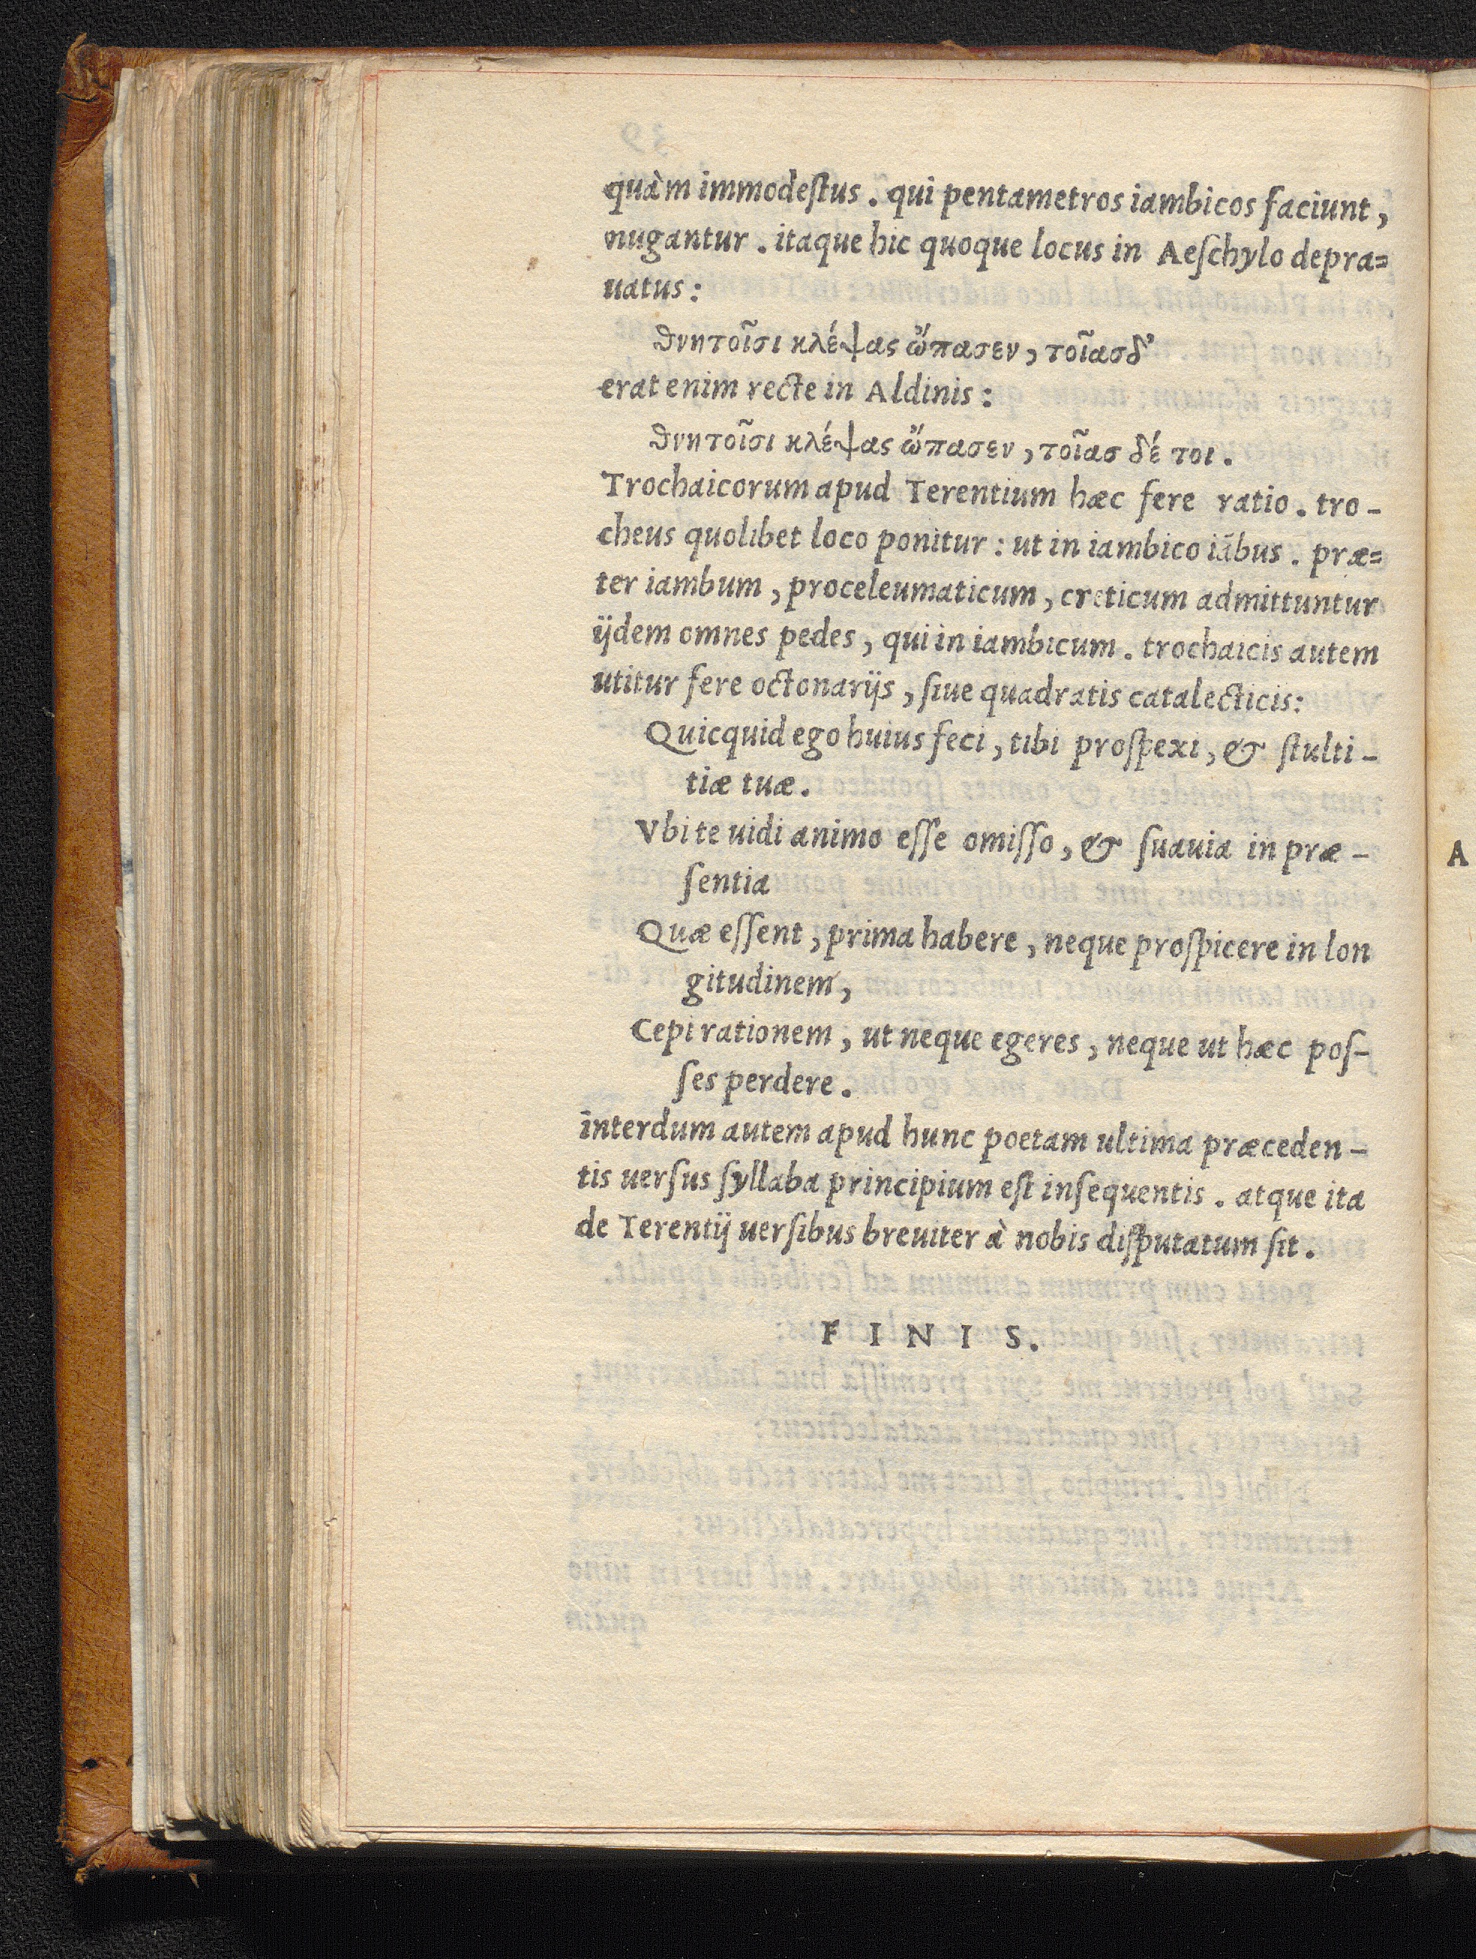 quàm immodeſtus. qui pentametros iambicos faciunt,
nugantur. itaque hic quoque locus in Aeſchylo depra=
uatus:
θνητοῖσι κλέψας ὤπασεν, τοῖασδ’
erat enim recte in Aldinis:
θνητοῖσι κλέψας ὤπασεν, τοῖασ δέ τοι.
Trochaicorum apud Terentium hæc fere ratio. tro-
cheus quolibet loco ponitur: ut in iambico iãbus. præ=
ter iambum, proceleumaticum, creticum admittuntur
ijdem omnes pedes, qui in iambicum. trochaicis autem
utitur fere octonarijs, ſiue quadratis catalecticis:
Quicquid ego huius feci, tibi proſpexi, & ſtulti-
tiæ tuæ.
Vbi te uidi animo eſſe omiſſo, & ſuauia in præ-
ſentia
Quæ eſſent, prima habere, neque proſpicere in lon
gitudinem,
Cepi rationem, ut neque egeres, neque ut hæc poſ-
ſes perdere.
interdum autem apud hunc poetam ultima præceden-
tis uerſus ſyllaba principium eſt inſequentis. atque ita
de Terentij uerſibus breuiter à nobis diſputatum ſit.
F I N I S.
A